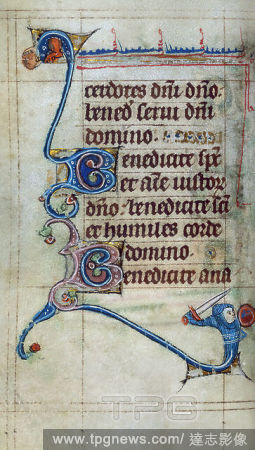 cerdotes dñi dño.
bened̃ serui dñi
domino.
Benedicite sp̃c
et aĩe iustor
dño. benedicite sc̃i
et humiles corde
domino.
Benedicite ana
TPG
www.tpgnews.com/ 達志影像